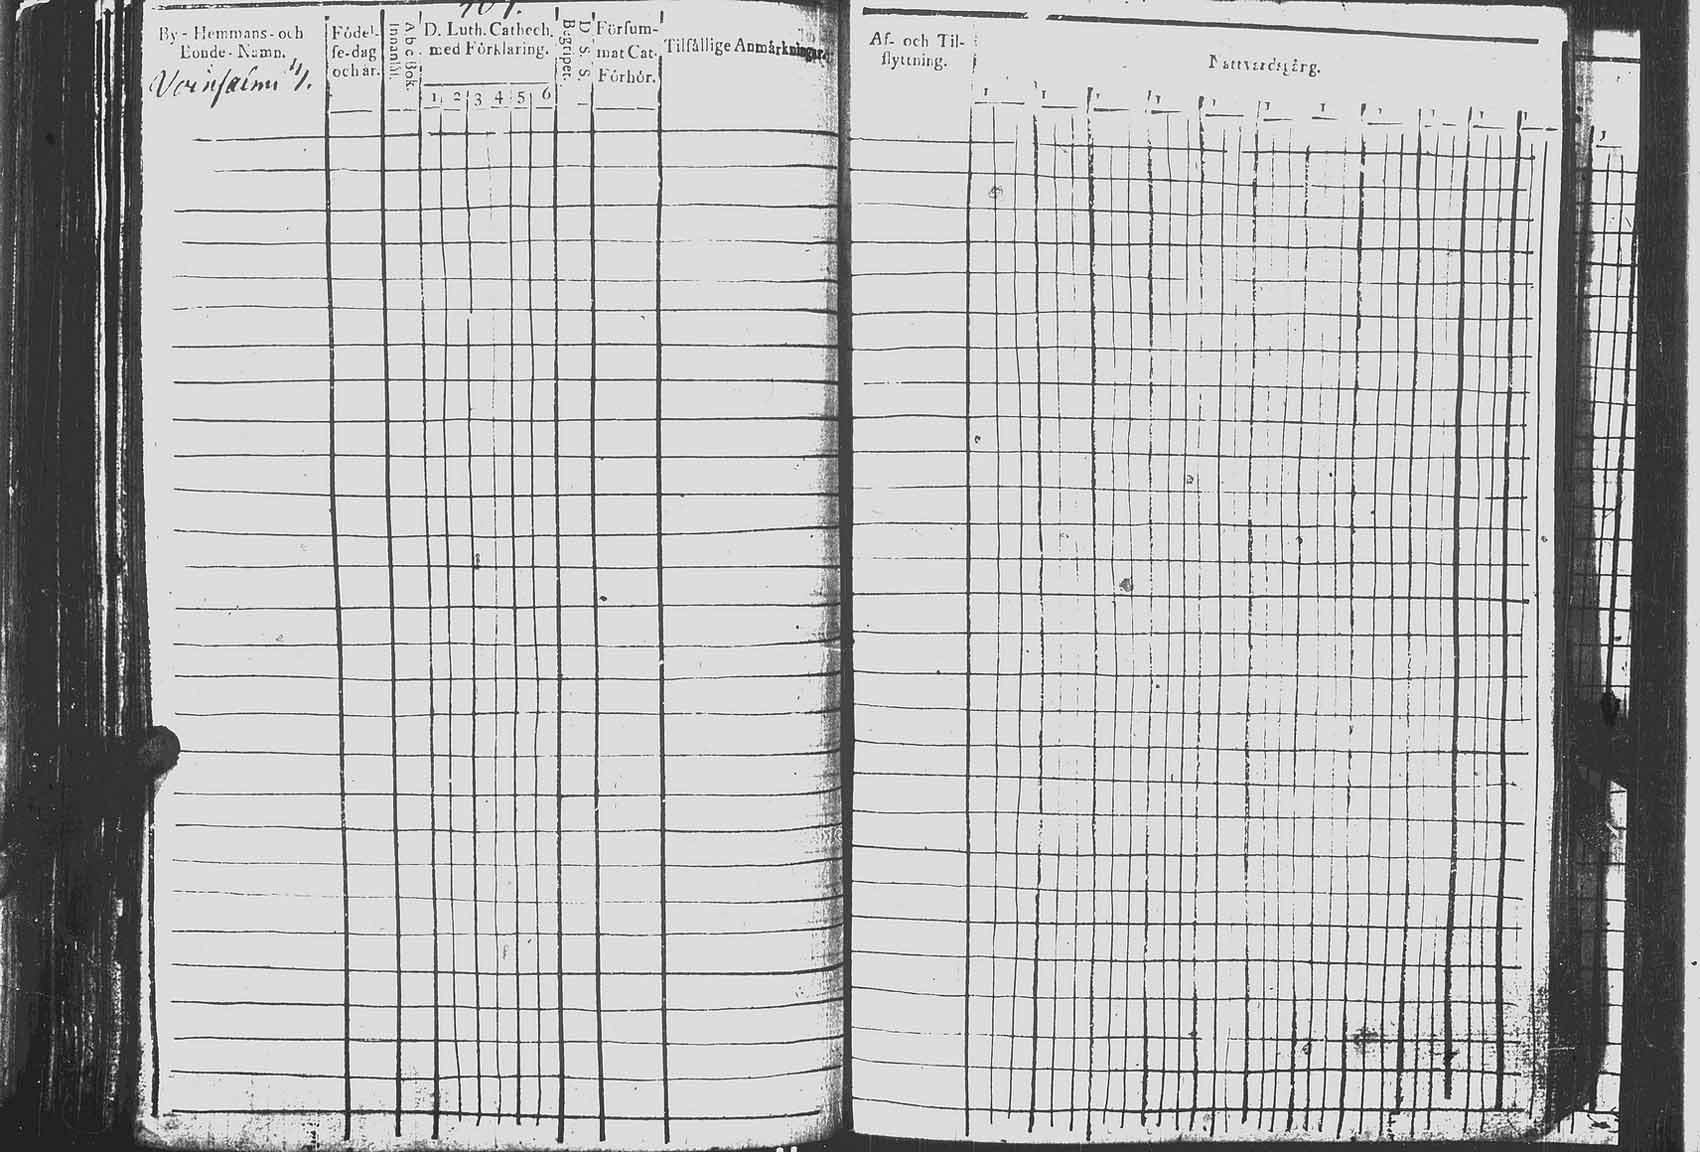 By- Hemmans- och
Bonde- Namn.
Födel-
se-dag
och år.
Innanläs.
A b c Bok.
D. Luth. Cathech.
med Förklaring.
1 2 3 4 5 6
Begrepet.
D. S. S.
Försum-
mat Cat.
Förhör.
Tilfällige Anmärkningar.
Af- och Til-
flyttning.
Nattvardsgång.
1 1 1 1 1 1 1 1 1 1 1